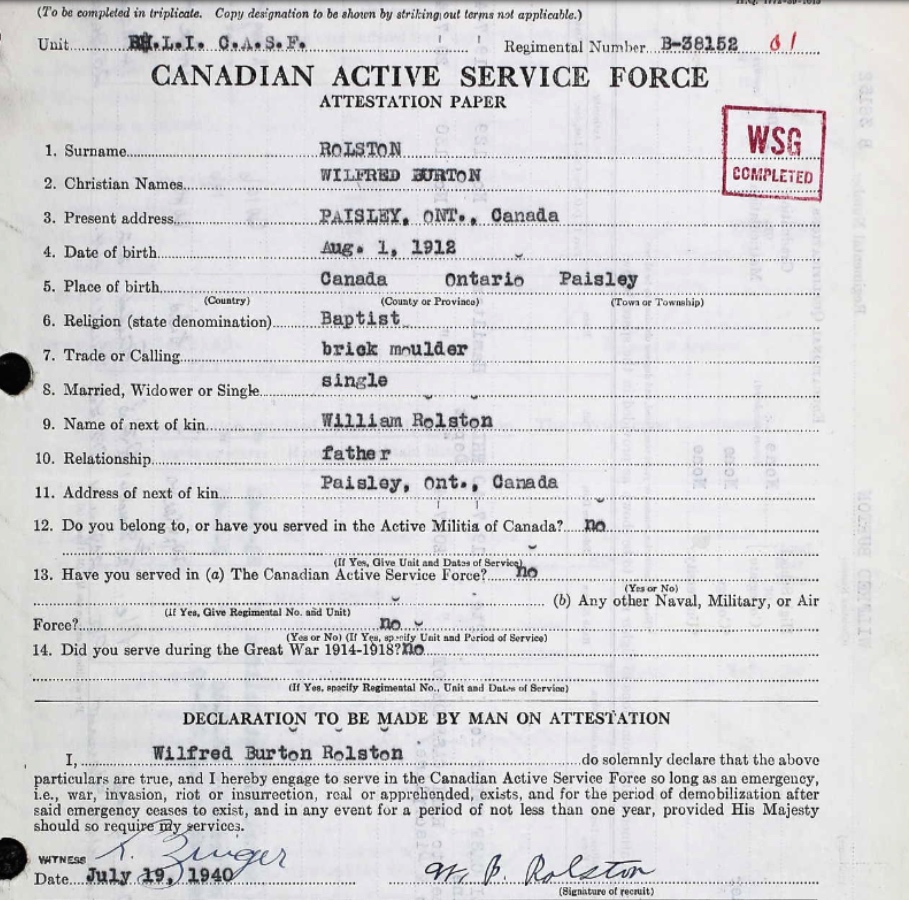 (To be completed in triplicate. Copy designation to be shown by striking out terms not applicable.)
Unit H.L.I. C.A.S.F. Regimental Number B-38152 61
CANADIAN ACTIVE SERVICE FORCE
ATTESTATION PAPER
WSG
COMPLETED
1. Surname ROLSTON
2. Christian Names WILFRED BURTON
3. Present address PAISLEY, ONT., Canada
4. Date of birth Aug. 1, 1912
5. Place of birth Canada Ontario Paisley
(Country) (County or Province) (Town or Township)
6. Religion (state denomination) Baptist
7. Trade or Calling brick moulder
8. Married, Widower or Single single
9. Name of next of kin William Rolston
10. Relationship father
11. Address of next of kin Paisley, Ont., Canada
12. Do you belong to, or have you served in the Active Militia of Canada? no
(If Yes, Give Unit and Dates of Service)
13. Have you served in (a) The Canadian Active Service Force? no
(Yes or No)
(b) Any other Naval, Military, or Air
(If Yes, Give Regimental No. and Unit)
Force? no
(Yes or No) (If Yes, specify Unit and Period of Service)
14. Did you serve during the Great War 1914-1918? no
(If Yes, specify Regimental No., Unit and Dates of Service)
DECLARATION TO BE MADE BY MAN ON ATTESTATION
I, Wilfred Burton Rolston do solemnly declare that the above
particulars are true, and I hereby engage to serve in the Canadian Active Service Force so long as an emergency,
i.e., war, invasion, riot or insurrection, real or apprehended, exists, and for the period of demobilization after
said emergency ceases to exist, and in any event for a period of not less than one year, provided His Majesty
should so require my services.
WITNESS Zinger
Date July 19, 1940 W. B. Rolston
(Signature of recruit)